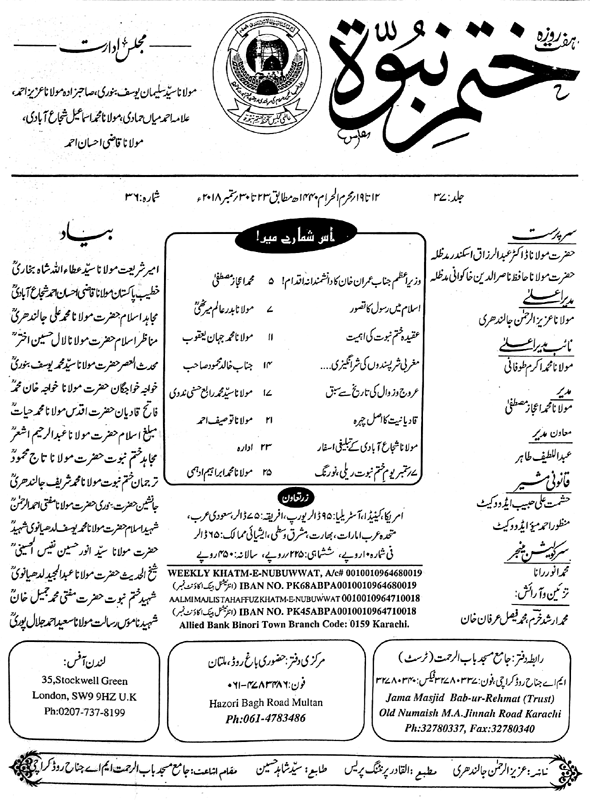 ہفت روزہ
ختم نبوۃ
مجلس ادارت
مولانا سید سلیمان یوسف بنوری، صاحبزادہ مولانا عزیز احمد،
علامہ احمد میاں حمادی، مولانا محمد اسماعیل شجاع آبادی،
مولانا قاضی احسان احمد
جلد: ۳۷
۱۲ تا ۱۹ محرم الحرام ۱۴۴۰ھ مطابق ۲۳ تا ۳۰ ستمبر ۲۰۱۸ء
شمارہ: ۳۶
سرپرست
حضرت مولانا ڈاکٹر عبدالرزاق اسکندر مدظلہ
حضرت مولانا حافظ ناصر الدین خاکوانی مدظلہ
مدیر اعلیٰ
مولانا عزیز الرحمٰن جالندھری
نائب مدیر اعلیٰ
مولانا محمد اکرم طوفانی
مدیر
مولانا محمد اعجاز مصطفیٰ
معاون مدیر
عبداللطیف طاہر
قانونی مشیر
حشمت علی حبیب ایڈووکیٹ
منظور احمد میؤ ایڈووکیٹ
سرکولیشن منیجر
محمد انور رانا
تزئین و آرائش:
محمد ارشد خرم، محمد فیصل عرفان خان
اس شمارے میں!
وزیر اعظم جناب عمران خان کا دانشمندانہ اقدام! ۵ محمد اعجاز مصطفیٰ
اسلام میں رسول کا تصور ۷ مولانا بدر عالم میرٹھیؒ
عقیدہ ختم نبوت کی اہمیت ۱۱ مولانا محمد جہان یعقوب
مغربی شر پسندوں کی شر انگیزی.... ۱۴ جناب خالد محمود صاحب
عروج و زوال کی تاریخ سے سبق ۱۷ مولانا سید محمد رابع حسنی ندوی
قادیانیت کا اصل چہرہ ۲۱ مولانا توصیف احمد
مولانا شجاع آبادی کے تبلیغی اسفار ۲۳ ادارہ
۷ ستمبر یوم ختم نبوت ریلی، نورنگ ۲۵ مولانا محمد ابراہیم ادہمی
زر تعاون
امریکا، کینیڈا، آسٹریلیا: ۹۵ ڈالر یورپ، افریقہ: ۷۵ ڈالر، سعودی عرب،
متحدہ عرب امارات، بھارت، مشرق وسطیٰ، ایشیائی ممالک: ۶۵ ڈالر
فی شمارہ ۱۰ روپے، ششماہی: ۲۲۵ روپے، سالانہ: ۴۵۰ روپے
WEEKLY KHATM-E-NUBUWWAT, A/c# 0010010964680019
IBAN NO. PK68ABPA0010010964680019 (انٹرنیشنل بینک اکاؤنٹ نمبر)
AALMI MAJLIS TAHAFFUZ KHATM-E-NUBUWWAT 0010010964710018
IBAN NO. PK45ABPA0010010964710018 (انٹرنیشنل بینک اکاؤنٹ نمبر)
Allied Bank Binori Town Branch Code: 0159 Karachi.
بیاد
امیر شریعت مولانا سید عطاء اللہ شاہ بخاریؒ
خطیب پاکستان مولانا قاضی احسان احمد شجاع آبادیؒ
مجاہد اسلام حضرت مولانا محمد علی جالندھریؒ
مناظر اسلام حضرت مولانا لال حسین اخترؒ
محدث العصر حضرت مولانا سید محمد یوسف بنوریؒ
خواجہ خواجگان حضرت مولانا خواجہ خان محمدؒ
فاتح قادیان حضرت اقدس مولانا محمد حیاتؒ
مبلغ اسلام حضرت مولانا عبدالرحیم اشعرؒ
مجاہد ختم نبوت حضرت مولانا تاج محمودؒ
ترجمان ختم نبوت حضرت مولانا محمد شریف جالندھریؒ
جانشین حضرت بنوری حضرت مولانا مفتی احمد الرحمٰنؒ
شہید اسلام حضرت مولانا محمد یوسف لدھیانوی شہیدؒ
حضرت مولانا سید انور حسین نفیس الحسینیؒ
شیخ الحدیث حضرت مولانا عبدالمجید لدھیانویؒ
شہید ختم نبوت حضرت مفتی محمد جمیل خانؒ
شہید ناموس رسالت مولانا سعید احمد جلال پوریؒ
رابطہ دفتر: جامع مسجد باب الرحمت (ٹرسٹ)
ایم اے جناح روڈ کراچی، فون: ۳۲۷۸۰۳۳۷ فیکس: ۳۲۷۸۰۳۴۰
Jama Masjid Bab-ur-Rehmat (Trust)
Old Numaish M.A. Jinnah Road Karachi
Ph:32780337, Fax:32780340
مرکزی دفتر: حضوری باغ روڈ، ملتان
فون: ۰۶۱-۴۷۸۳۴۸۶
Hazori Bagh Road Multan
Ph:061-4783486
لندن آفس:
35,Stockwell Green
London, SW9 9HZ U.K
Ph:0207-737-8199
ناشر: عزیز الرحمٰن جالندھری مطبع: القادر پرنٹنگ پریس طابع: سید شاہد حسین مقام اشاعت: جامع مسجد باب الرحمت ایم اے جناح روڈ کراچی